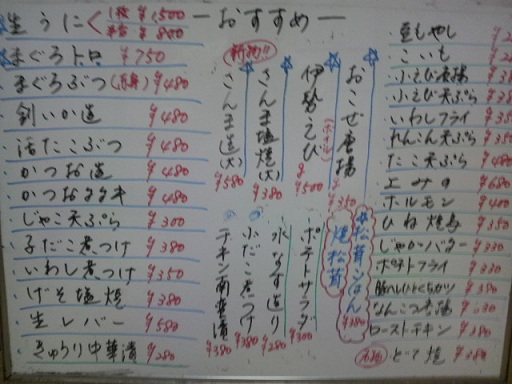 ーおすすめー
生うに 1枚 ¥1,500
¥800
まぐろトロ ¥750
まぐろぶつ ¥480
剣いか造 ¥480
活たこぶつ ¥480
かつお造 ¥480
かつおタタキ ¥480
じゃこ天ぷら ¥300
子だこ煮つけ ¥380
いわし煮つけ ¥350
げそ塩焼 ¥380
生レバー ¥580
きゅうり中華漬 ¥280
おこぜ唐揚
¥350
伊勢えび
¥500
新物!!
さんま塩焼(大) ¥380
さんま造(大) ¥580
松茸ごはん ¥380
焼松茸
ポテトサラダ ¥300
水なす造り ¥280
小だこ煮つけ ¥380
チキン南蛮漬 ¥380
豆もやし
小えび唐揚
小えび天ぷら
いわしフライ
れんこん天ぷら
たこ天ぷら ¥480
エサの ¥680
ホルモン ¥400
ひね焼鳥 ¥350
じゃがバター ¥330
ポテトフライ ¥330
豚ヘレひとくちカツ ¥380
なんこつ唐揚
ローストチキン ¥380
どて焼 ¥380